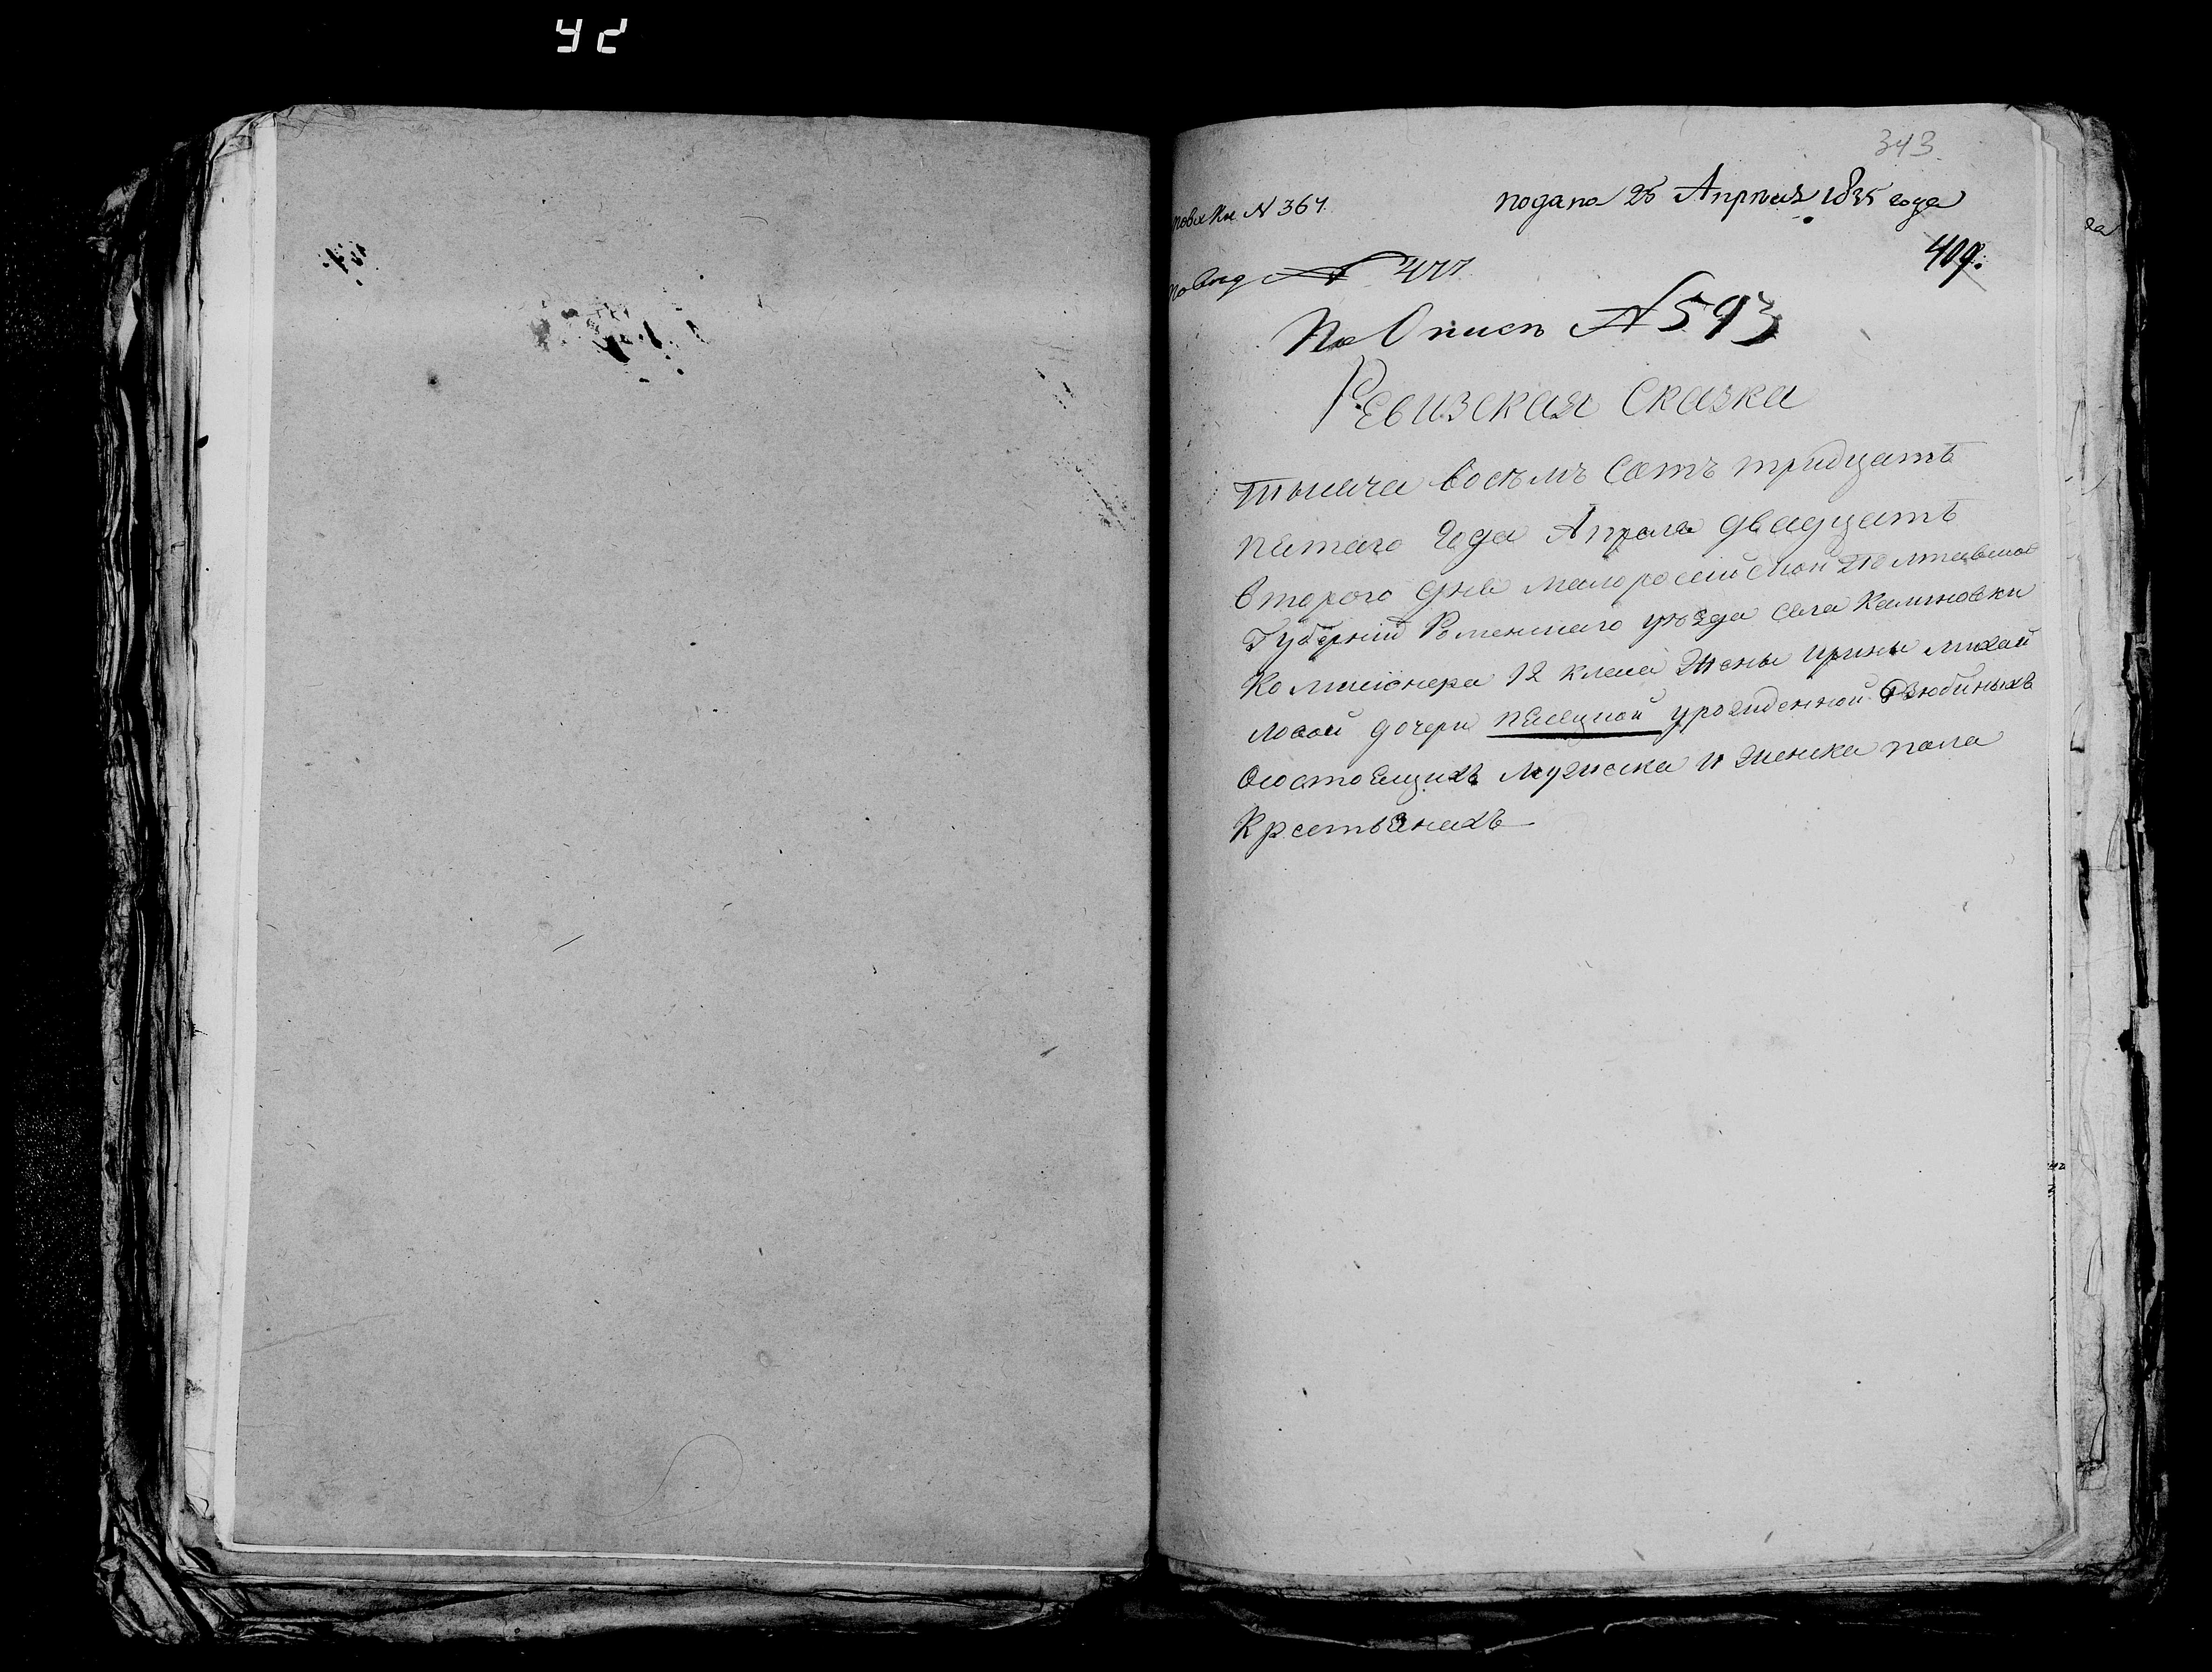 42
343.
подано 25 Апреля 1835 года
N 364.
409.
N 477
По Описи N 593
Ревизская Сказка
тысяча восемъ сотъ тридцать
пятаго года Апреля двадцать
второго дня малороссийской Полтавской
Губернии Роменского уезда села Калиновки
Комисионера 12 класа жены ирины михай
ловой дочери урожденной Дзюбиныхъ
Осостоящихъ мужеска и женска пола
Крестьянахъ